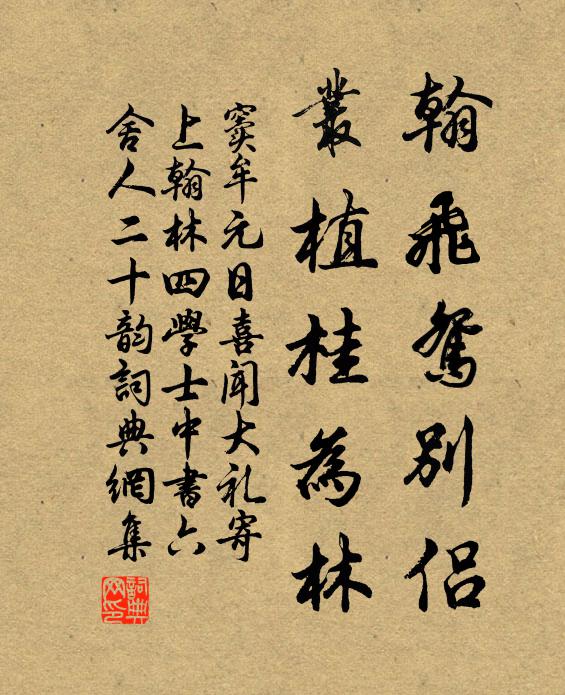 翰飛鴛別侶
叢植桂為林
竇牟元日喜聞大礼寄
上翰林四學士中書六
舍人二十韵詞典網集